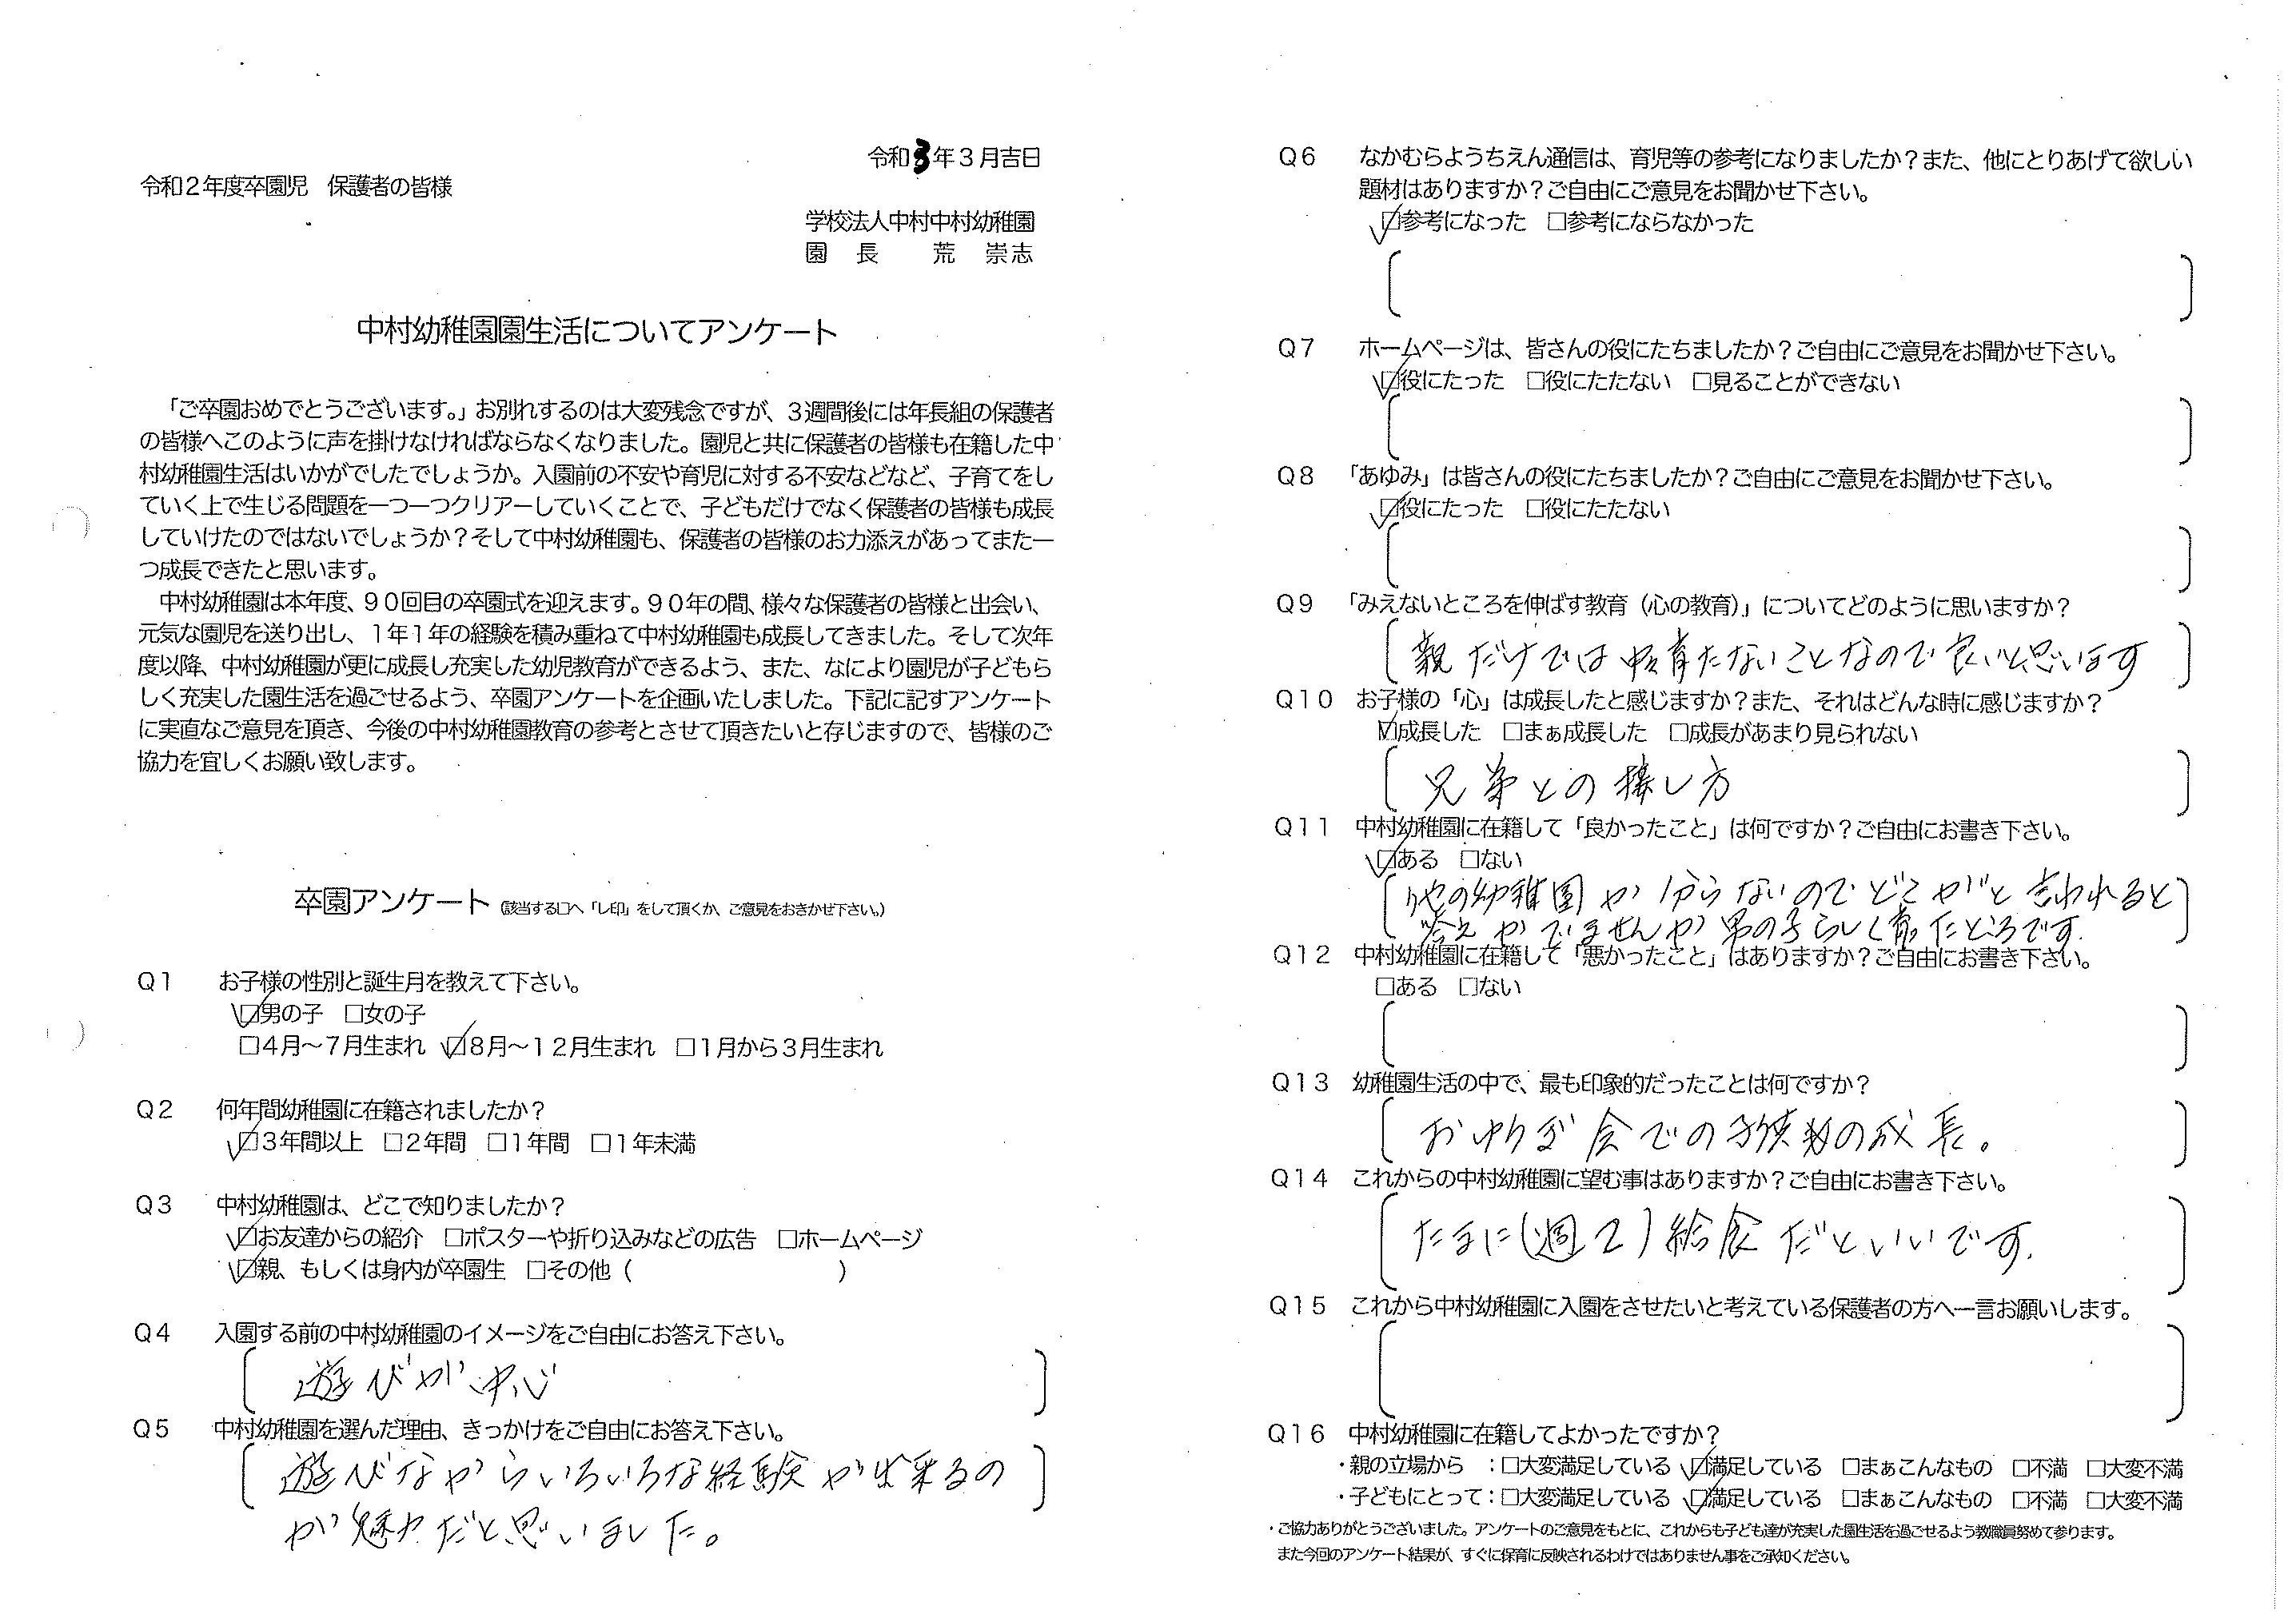 令和3年3月吉日
令和2年度卒園児　保護者の皆様
学校法人中村中村幼稚園
園　長　　荒　崇志
中村幼稚園園生活についてアンケート
「ご卒園おめでとうございます。」お別れするのは大変残念ですが、3週間後には年長組の保護者
の皆様へこのように声を掛けなければならなくなりました。園児と共に保護者の皆様も在籍した中
村幼稚園生活はいかがでしたでしょうか。入園前の不安や育児に対する不安などなど、子育てをし
ていく上で生じる問題を一つ一つクリアーしていくことで、子どもだけでなく保護者の皆様も成長
していけたのではないでしょうか？そして中村幼稚園も、保護者の皆様のお力添えがあってまた一
つ成長できたと思います。
中村幼稚園は本年度、90回目の卒園式を迎えます。90年の間、様々な保護者の皆様と出会い、
元気な園児を送り出し、1年1年の経験を積み重ねて中村幼稚園も成長してきました。そして次年
度以降、中村幼稚園が更に成長し充実した幼児教育ができるよう、また、なにより園児が子どもら
しく充実した園生活を過ごせるよう、卒園アンケートを企画いたしました。下記に記すアンケート
に実直なご意見を頂き、今後の中村幼稚園教育の参考とさせて頂きたいと存じますので、皆様のご
協力を宜しくお願い致します。
卒園アンケート（該当する□へ「レ印」をして頂くか、ご意見をおきかせ下さい。）
Q1　お子様の性別と誕生月を教えて下さい。
☑男の子　□女の子
□4月～7月生まれ　☑8月～12月生まれ　□1月から3月生まれ
Q2　何年間幼稚園に在籍されましたか？
☑3年間以上　□2年間　□1年間　□1年未満
Q3　中村幼稚園は、どこで知りましたか？
☑お友達からの紹介　□ポスターや折り込みなどの広告　□ホームページ
☑親、もしくは身内が卒園生　□その他（　　　　　　　　　　）
Q4　入園する前の中村幼稚園のイメージをご自由にお答え下さい。
遊びが中心
Q5　中村幼稚園を選んだ理由、きっかけをご自由にお答え下さい。
遊びながらいろいろな経験が出来るの
が魅力だと思いました。
Q6　なかむらようちえん通信は、育児等の参考になりましたか？また、他にとりあげて欲しい
題材はありますか？ご自由にご意見をお聞かせ下さい。
☑参考になった　□参考にならなかった
Q7　ホームページは、皆さんの役にたちましたか？ご自由にご意見をお聞かせ下さい。
☑役にたった　□役にたたない　□見ることができない
Q8　「あゆみ」は皆さんの役にたちましたか？ご自由にご意見をお聞かせ下さい。
☑役にたった　□役にたたない
Q9　「みえないところを伸ばす教育（心の教育）」についてどのように思いますか？
親だけでは育たないことなので良いと思います
Q10　お子様の「心」は成長したと感じますか？また、それはどんな時に感じますか？
☑成長した　□まぁ成長した　□成長があまり見られない
兄弟との接し方
Q11　中村幼稚園に在籍して「良かったこと」は何ですか？ご自由にお書き下さい。
☑ある　□ない
他の幼稚園が分らないのでどこがと言われると
答えがでませんが男の子らしく育ったところです.
Q12　中村幼稚園に在籍して「悪かったこと」はありますか？ご自由にお書き下さい。
□ある　□ない
Q13　幼稚園生活の中で、最も印象的だったことは何ですか？
おゆうぎ会での子供達の成長。
Q14　これからの中村幼稚園に望む事はありますか？ご自由にお書き下さい。
たまに(週2)給食だといいです.
Q15　これから中村幼稚園に入園をさせたいと考えている保護者の方へ一言お願いします。
Q16　中村幼稚園に在籍してよかったですか？
・親の立場から　：□大変満足している　☑満足している　□まぁこんなもの　□不満　□大変不満
・子どもにとって：□大変満足している　☑満足している　□まぁこんなもの　□不満　□大変不満
・ご協力ありがとうございました。アンケートのご意見をもとに、これからも子ども達が充実した園生活を過ごせるよう教職員努めて参ります。
また今回のアンケート結果が、すぐに保育に反映されるわけではありません事をご承知ください。